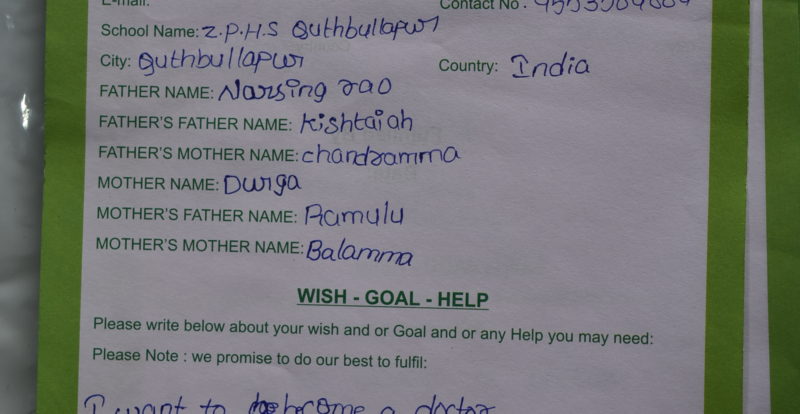 E-mail:
Contact No.
School Name: Z.P.H.S Quthbullapur
City: Quthbullapur Country: India
FATHER NAME: Narsing rao
FATHER'S FATHER NAME: Kishtaiah
FATHER'S MOTHER NAME: chandramma
MOTHER NAME: Durga
MOTHER'S FATHER NAME: Ramulu
MOTHER'S MOTHER NAME: Balamma
WISH - GOAL - HELP
Please write below about your wish and or Goal and or any Help you may need:
Please Note : we promise to do our best to fulfil:
I want to become a doctor